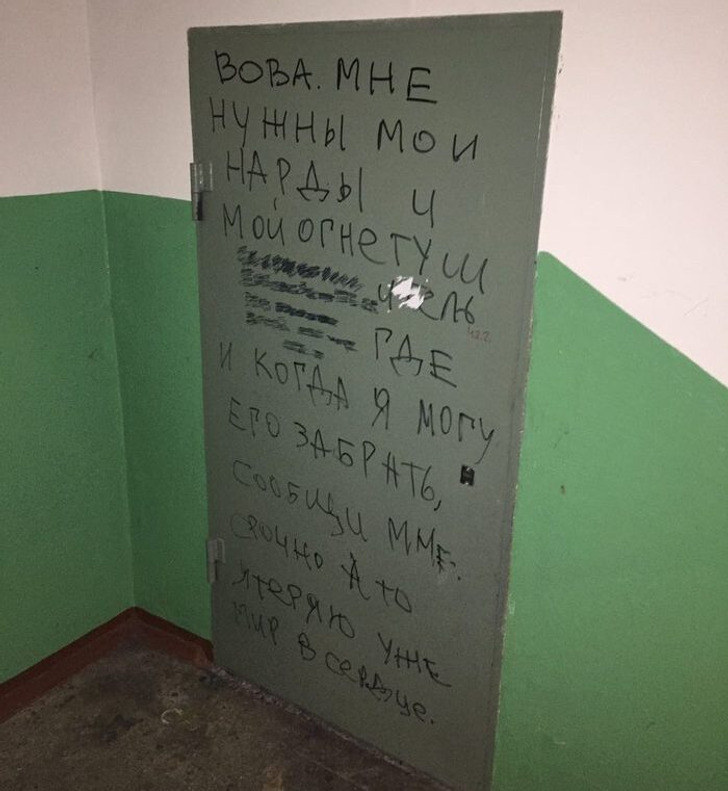 ВОВА. МНЕ
НУЖНЫ МОИ
НАРДЫ И
МОЙ ОГНЕТУШ
ИТЕЛЬ
422
ГДЕ
И КОГДА Я МОГУ
ЕГО ЗАБРАТЬ,
СООБЩИ МНЕ.
СРОЧНО А ТО
ЯТЕРЯЮ УЖЕ
МИР В СЕРДЦЕ.